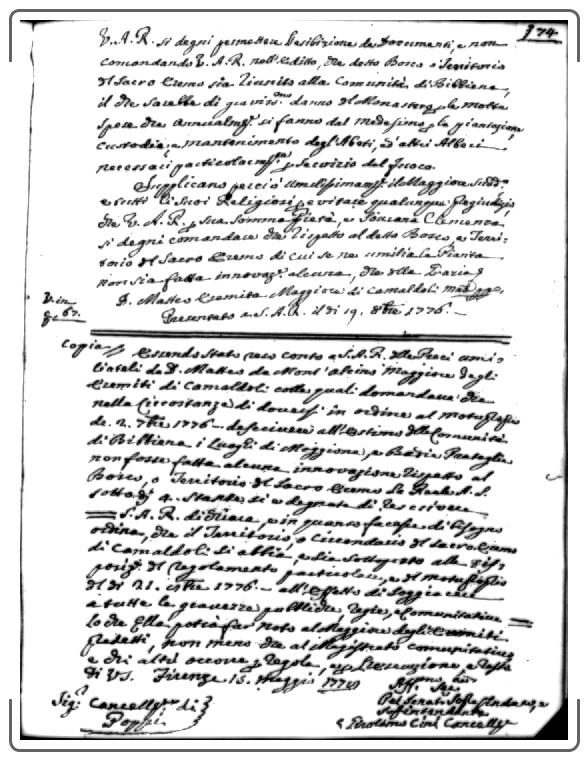 374
V. A. R. si degni permettere l'esibizione de Documenti, e non
comandando V. A. R. nell'Editto, che detto Bosco o Territorio
del Sacro Eremo sia riunito alla Comunità di Bibbiena,
il che sarebbe di graviss.mo danno del Monastero, p. le molte
spese che annualm.te si fanno dal medesimo p. la piantazione
custodia, e mantenimento degl'Abeti, ed altri Alberi
necessari particolarm.te p. servizio del
Supplicano perciò umilissimam.te il Maggiore sudd.o
e tutti li suoi Religiosi p. evitare qualunque pregiudizio,
che V. A. R. p. sua somma Pietà, e Sovrana Clemenza
si degni comandare che rispetto al detto Bosco, e Terri-
torio del Sacro Eremo di cui se ne umilia la Pianta
non sia fatta innovaz.e alcuna, che della Grazia
D. Matteo Eremita Maggiore di Camaldoli
Presentato a S. A. R. il dì 19. 8bre 1776.
V. in
67.
Copia
Essendo stato reso conto a S. A. R. delle Preci umi-
liateli da D. Matteo da Mont'alcino Maggiore degli
Eremiti di Camaldoli colle quali domandava che
nella Circostanza di doversi in ordine al motuproprio
de 2. 7bre 1776 descrivere all'Estimo della Comunità
di Bibbiena i Luoghi di Moggiona, e Badia Prataglia
non fosse fatta alcuna innovazione rispetto al
Bosco, o Territorio del Sacro Eremo La Reale A. S.
sotto dì 4. stante si è degnata di rescrivere
S. A. R. dichiara, e in quanto facesse di bisogno
ordina, che il Territorio, o Circondario del Sacro Eremo
di Camaldoli si abbia, e sia sottoposto alle dis-
posiz.i del regolamento particolare, e del motuproprio
del dì 21. 1776 all'effetto di soggiacere
a tutte le gravezze pubbliche, regie, e Comunitative
lo che Ella potrà far noto al Maggiore degli Eremiti
predetti, non meno che al Magistrato comunitativo
e chi altri occorre p. regola, e p. l'esecuzione, e resto
di VS. Firenze 15. Maggio 1778
Sig.r Cancell.re di
Poppi
Aff.mo Ser.
Pel Senat.
Soprintendente
Girolamo Cini Cancell.re